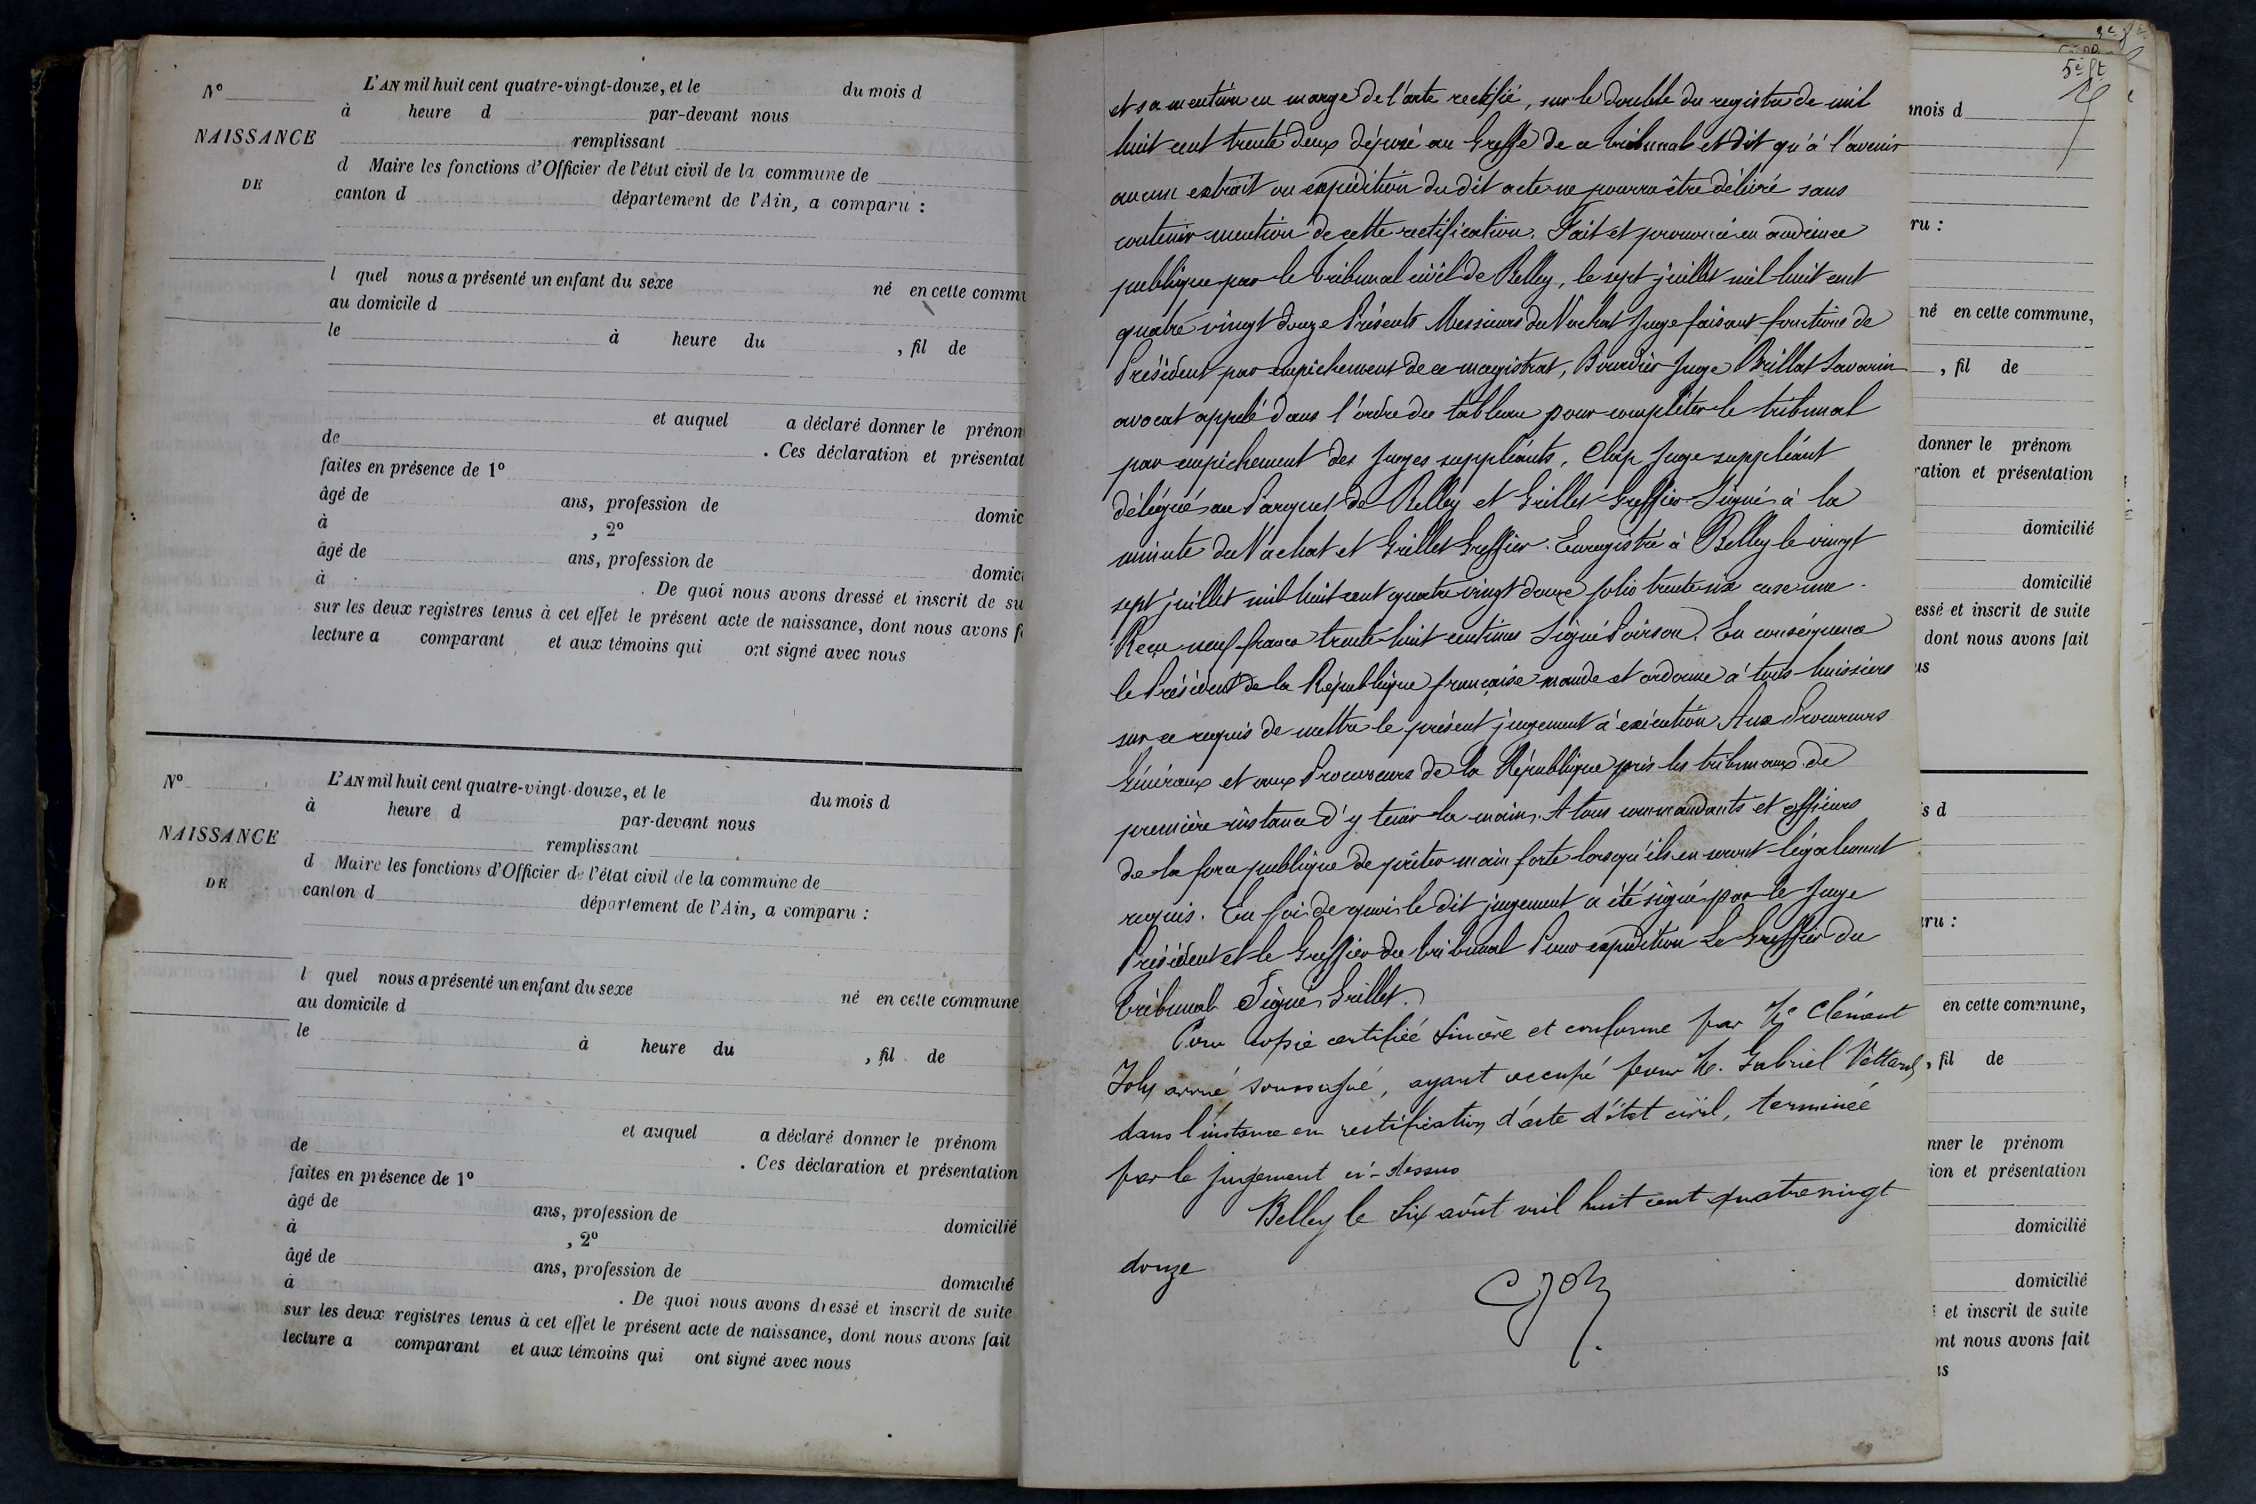 N°
NAISSANCE
DE
L'AN mil huit cent quatre-vingt-douze, et le du mois d
à heure d par-devant nous
remplissant
d Maire les fonctions d'Officier de l'état civil de la commune de
canton d département de l'Ain, a comparu :
l quel nous a présenté un enfant du sexe né en cette commu
au domicile d
le à heure du , fil de
et auquel a déclaré donner le prénom
de . Ces déclaration et présentat
faites en présence de 1°
âgé de ans, profession de domic
à , 2°
âgé de ans, profession de domici
à . De quoi nous avons dressé et inscrit de su
sur les deux registres tenus à cet effet le présent acte de naissance, dont nous avons f
lecture a comparant et aux témoins qui ont signé avec nous
N°
NAISSANCE
DE
L'AN mil huit cent quatre-vingt-douze, et le du mois d
à heure d par-devant nous
remplissant
d Maire les fonctions d'Officier de l'état civil de la commune de
canton d département de l'Ain, a comparu :
l quel nous a présenté un enfant du sexe né en cette commune
au domicile d
le à heure du , fil de
et auquel a déclaré donner le prénom
de . Ces déclaration et présentation
faites en présence de 1°
âgé de ans, profession de domicilié
à , 2°
âgé de ans, profession de domicilié
à . De quoi nous avons dressé et inscrit de suite
sur les deux registres tenus à cet effet le présent acte de naissance, dont nous avons fait
lecture a comparant et aux témoins qui ont signé avec nous
et sa mention en marge de l'acte rectifié, sur le double du registre de mil
huit cent trente deux déposé au Greffe de ce tribunal et dit qu'à l'avenir
aucun extrait ou expédition du dit acte ne pourra être délivré sans
contenir mention de cette rectification. Fait et prononcé en audience
publique par le tribunal civil de Belley, le sept juillet mil huit cent
quatre vingt douze Présents Messieurs du Vachat Juge faisant fonctions de
Président par empêchement de ce magistrat, Bourdin Juge Brillat Savarin
avocat appelé dans l'ordre du tableau pour compléter le tribunal
par empêchement des Juges suppléants, Clap Juge suppléant
délégué au Parquet de Belley et Grillet Greffier Signé à la
minute du Vachat et Grillet Greffier. Enregistré à Belley le vingt
sept juillet mil huit cent quatre vingt douze folio trente six case une.
Reçu neuf francs trente huit centimes Signé Poirson. En conséquence
le Président de la République française mande et ordonne à tous huissiers
sur ce requis de mettre le présent jugement à exécution Aux Procureurs
Généraux et aux Procureurs de la République près les tribunaux de
première instance d'y tenir la main. A tous commandants et officiers
de la force publique de prêter main forte lorsqu'ils en seront légalement
requis. En foi de quoi le dit jugement a été signé par le Juge
Président et le Greffier du tribunal Pour expédition Le Greffier du
tribunal Signé Grillet.
Pour copie certifiée sincère et conforme par Me Clément
Joly avoué soussigné, ayant occupé pour M. Gabriel Vettard,
dans l'instance en rectification d'acte d'état civil, terminée
par le jugement ci-dessus
Belley le six août mil huit cent quatre vingt
douze
CJoly
5e ft
mois d
ru :
né en cette commune,
, fil de
donner le prénom
ration et présentation
domicilié
domicilié
essé et inscrit de suite
dont nous avons fait
us
s d
aru :
en cette commune,
, fil de
nner le prénom
ion et présentation
domicilié
domicilié
et inscrit de suite
ont nous avons fait
us